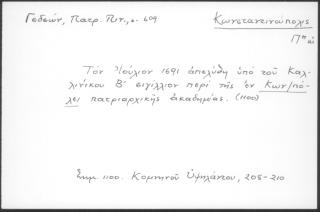 Γεδεών, Πατρ. Πιν., σ. 609
Κωνσταντινούπολις
Π<sup>αι</sup>
Τόν Ἰούλιον 1691 ἀπελύθη ὑπό τοῦ Καλ-
λινίκου Β΄ σιγίλλιον περί τῆς ἐν Κων/πό-
λει πατριαρχικῆς ἀκαδημίας. (1100)
Σημ. 1100. Κομνηνοῦ Ὑψηλάντου, 208-210